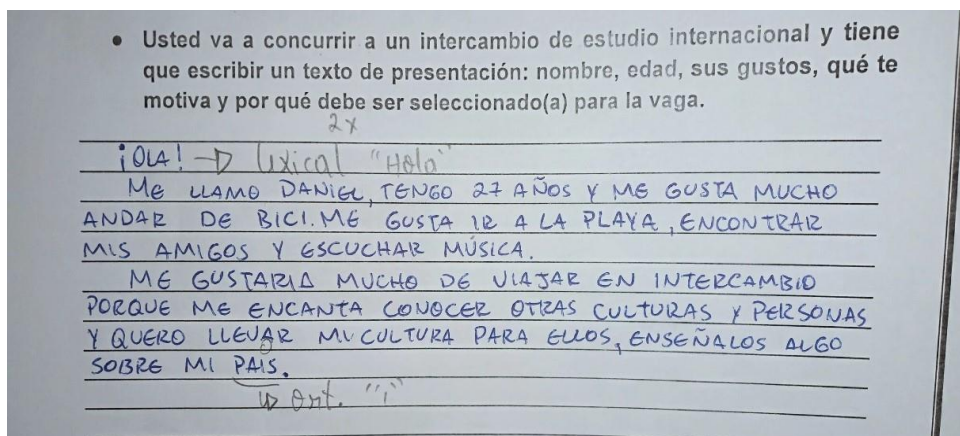 • Usted va a concurrir a un intercambio de estudio internacional y tiene
que escribir un texto de presentación: nombre, edad, sus gustos, qué te
motiva y por qué debe ser seleccionado(a) para la vaga.
2x
¡OLA! → lexical "Hola"
ME LLAMO DANIEL, TENGO 27 AÑOS Y ME GUSTA MUCHO
ANDAR DE BICI. ME GUSTA IR A LA PLAYA, ENCONTRAR
MIS AMIGOS Y ESCUCHAR MÚSICA.
ME GUSTARIA MUCHO DE VIAJAR EN INTERCAMBIO
PORQUE ME ENCANTA CONOCER OTRAS CULTURAS Y PERSONAS
Y QUERO LLEVAR MI CULTURA PARA ELLOS, ENSEÑALOS ALGO
SOBRE MI PAIS.
→ ort. "í"